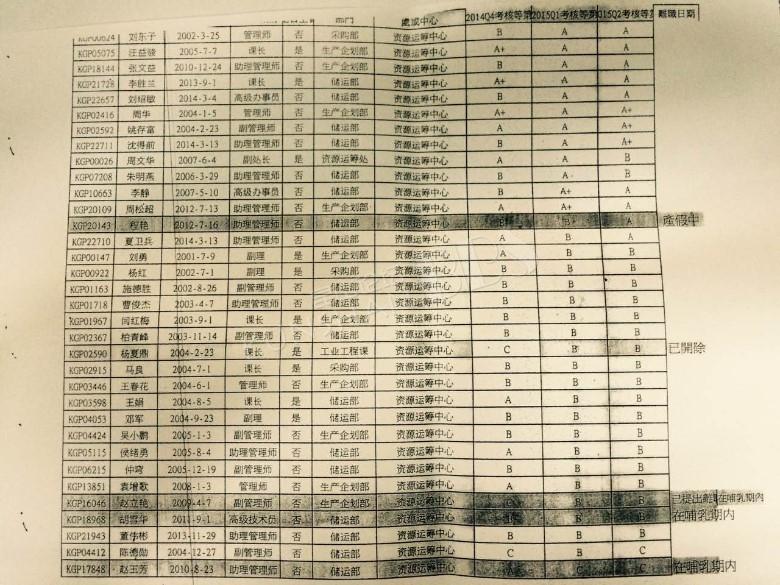 部门 处或中心 2014Q4考核等第 2015Q1考核等第 015Q2考核等第 離職日期
KGP00624 刘东子 2002-3-25 管理师 否 采购部 资源运筹中心 B A A
KGP05075 汪益骏 2005-7-7 课长 是 生产企划部 资源运筹中心 A+ A A
KGP18144 张文益 2010-12-24 助理管理师 否 储运部 资源运筹中心 B A A
KGP21728 李胜兰 2013-9-1 课长 是 储运部 资源运筹中心 A+ A A
KGP22657 刘绍敏 2014-3-4 高级办事员 否 储运部 资源运筹中心 A A A
KGP02416 周华 2004-1-5 管理师 否 生产企划部 资源运筹中心 A+ A A+
KGP02592 姚存富 2004-2-23 副管理师 否 储运部 资源运筹中心 A A A+
KGP22711 沈得前 2014-3-13 助理管理师 否 储运部 资源运筹中心 A A A+
KGP00026 周文华 2007-6-4 副处长 是 资源运筹处 资源运筹中心 A A B
KGP07208 朱明燕 2006-3-29 助理管理师 否 储运部 资源运筹中心 B A A
KGP10663 李静 2007-5-10 高级办事员 否 储运部 资源运筹中心 B A+ A
KGP20109 周松超 2012-7-13 助理管理师 否 生产企划部 资源运筹中心 A A+ A
KGP20143 程艳 2012-7-16 助理管理师 否 储运部 资源运筹中心 B B A 産假中
KGP22710 夏卫兵 2014-3-13 助理管理师 否 储运部 资源运筹中心 A B A
KGP00147 刘勇 2001-7-9 副理 是 生产企划部 资源运筹中心 A B B
KGP00922 杨红 2002-7-1 副理 是 采购部 资源运筹中心 B B B
KGP01163 施德胜 2002-8-26 副管理师 否 储运部 资源运筹中心 B B B
KGP01718 曹俊杰 2003-4-7 助理管理师 否 储运部 资源运筹中心 B B B
KGP01967 闵红梅 2003-9-1 课长 是 生产企划部 资源运筹中心 B B B
KGP02367 柏青峰 2003-11-14 副管理师 否 储运部 资源运筹中心 B B B
KGP02590 杨夏鼎 2004-2-23 课长 是 工业工程课 资源运筹中心 C B B 已開除
KGP02915 马良 2004-7-1 课长 是 采购部 资源运筹中心 B B B
KGP03446 王春花 2004-6-1 管理师 否 生产企划部 资源运筹中心 B B B
KGP03598 王娟 2004-8-5 课长 是 储运部 资源运筹中心 A B B
KGP04053 邓军 2004-9-23 副理 是 储运部 资源运筹中心 B B B
KGP04424 吴小鹏 2005-1-3 副管理师 否 生产企划部 资源运筹中心 B B B
KGP05115 侯绪勇 2005-8-4 助理管理师 否 储运部 资源运筹中心 A B B
KGP06215 仲弯 2005-12-19 副管理师 否 储运部 资源运筹中心 B B B
KGP13851 袁增歌 2008-1-3 管理师 否 生产企划部 资源运筹中心 A B B
KGP16046 赵立艳 2009-4-7 副管理师 否 生产企划部 资源运筹中心 B B 已提出離 在哺乳期内
KGP18968 胡雪华 2011-9-1 高级技术员 否 储运部 资源运筹中心 B B 在哺乳期内
KGP21943 董伟彬 2013-11-29 助理管理师 否 储运部 资源运筹中心 B B B
KGP04412 陈德勋 2004-12-27 副管理师 否 储运部 资源运筹中心 C B C
KGP17848 赵玉芳 2010-8-23 助理管理师 否 储运部 资源运筹中心 A C C 在哺乳期内